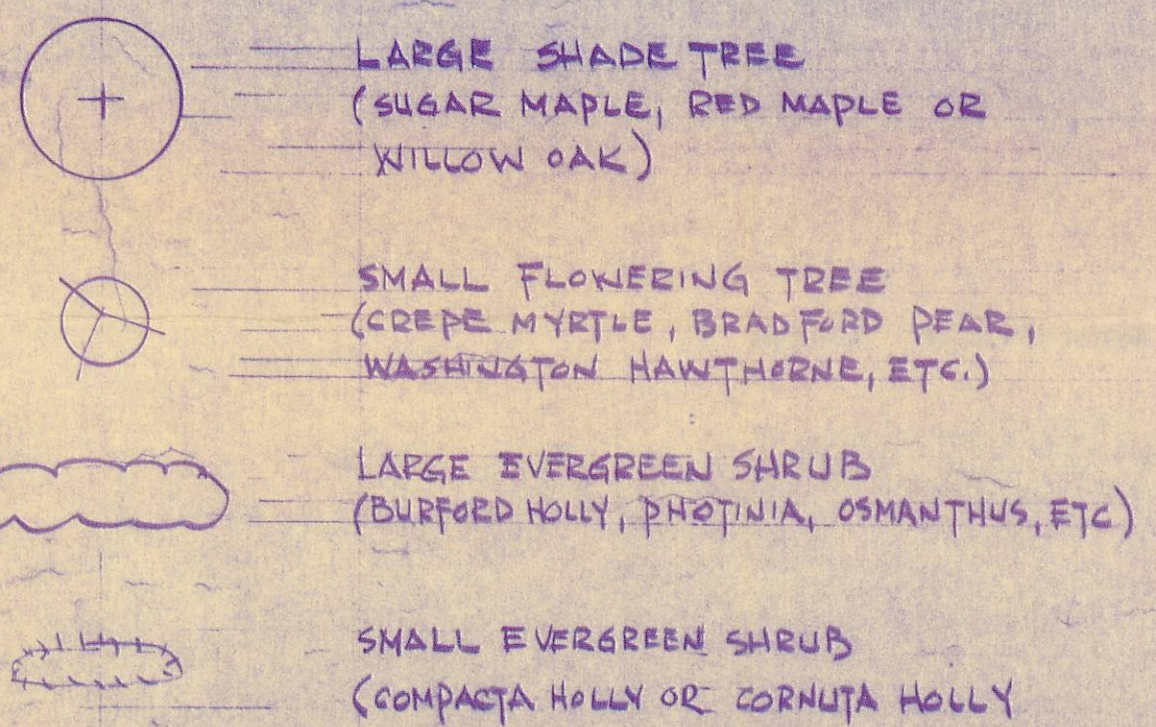 LARGE SHADE TREE
(SUGAR MAPLE, RED MAPLE OR
WILLOW OAK)
SMALL FLOWERING TREE
(CREPE MYRTLE, BRADFORD PEAR,
WASHINGTON HAWTHORNE, ETC.)
LARGE EVERGREEN SHRUB
(BURFORD HOLLY, PHOTINIA, OSMANTHUS, ETC)
SMALL EVERGREEN SHRUB
(COMPACTA HOLLY OR CORNUTA HOLLY